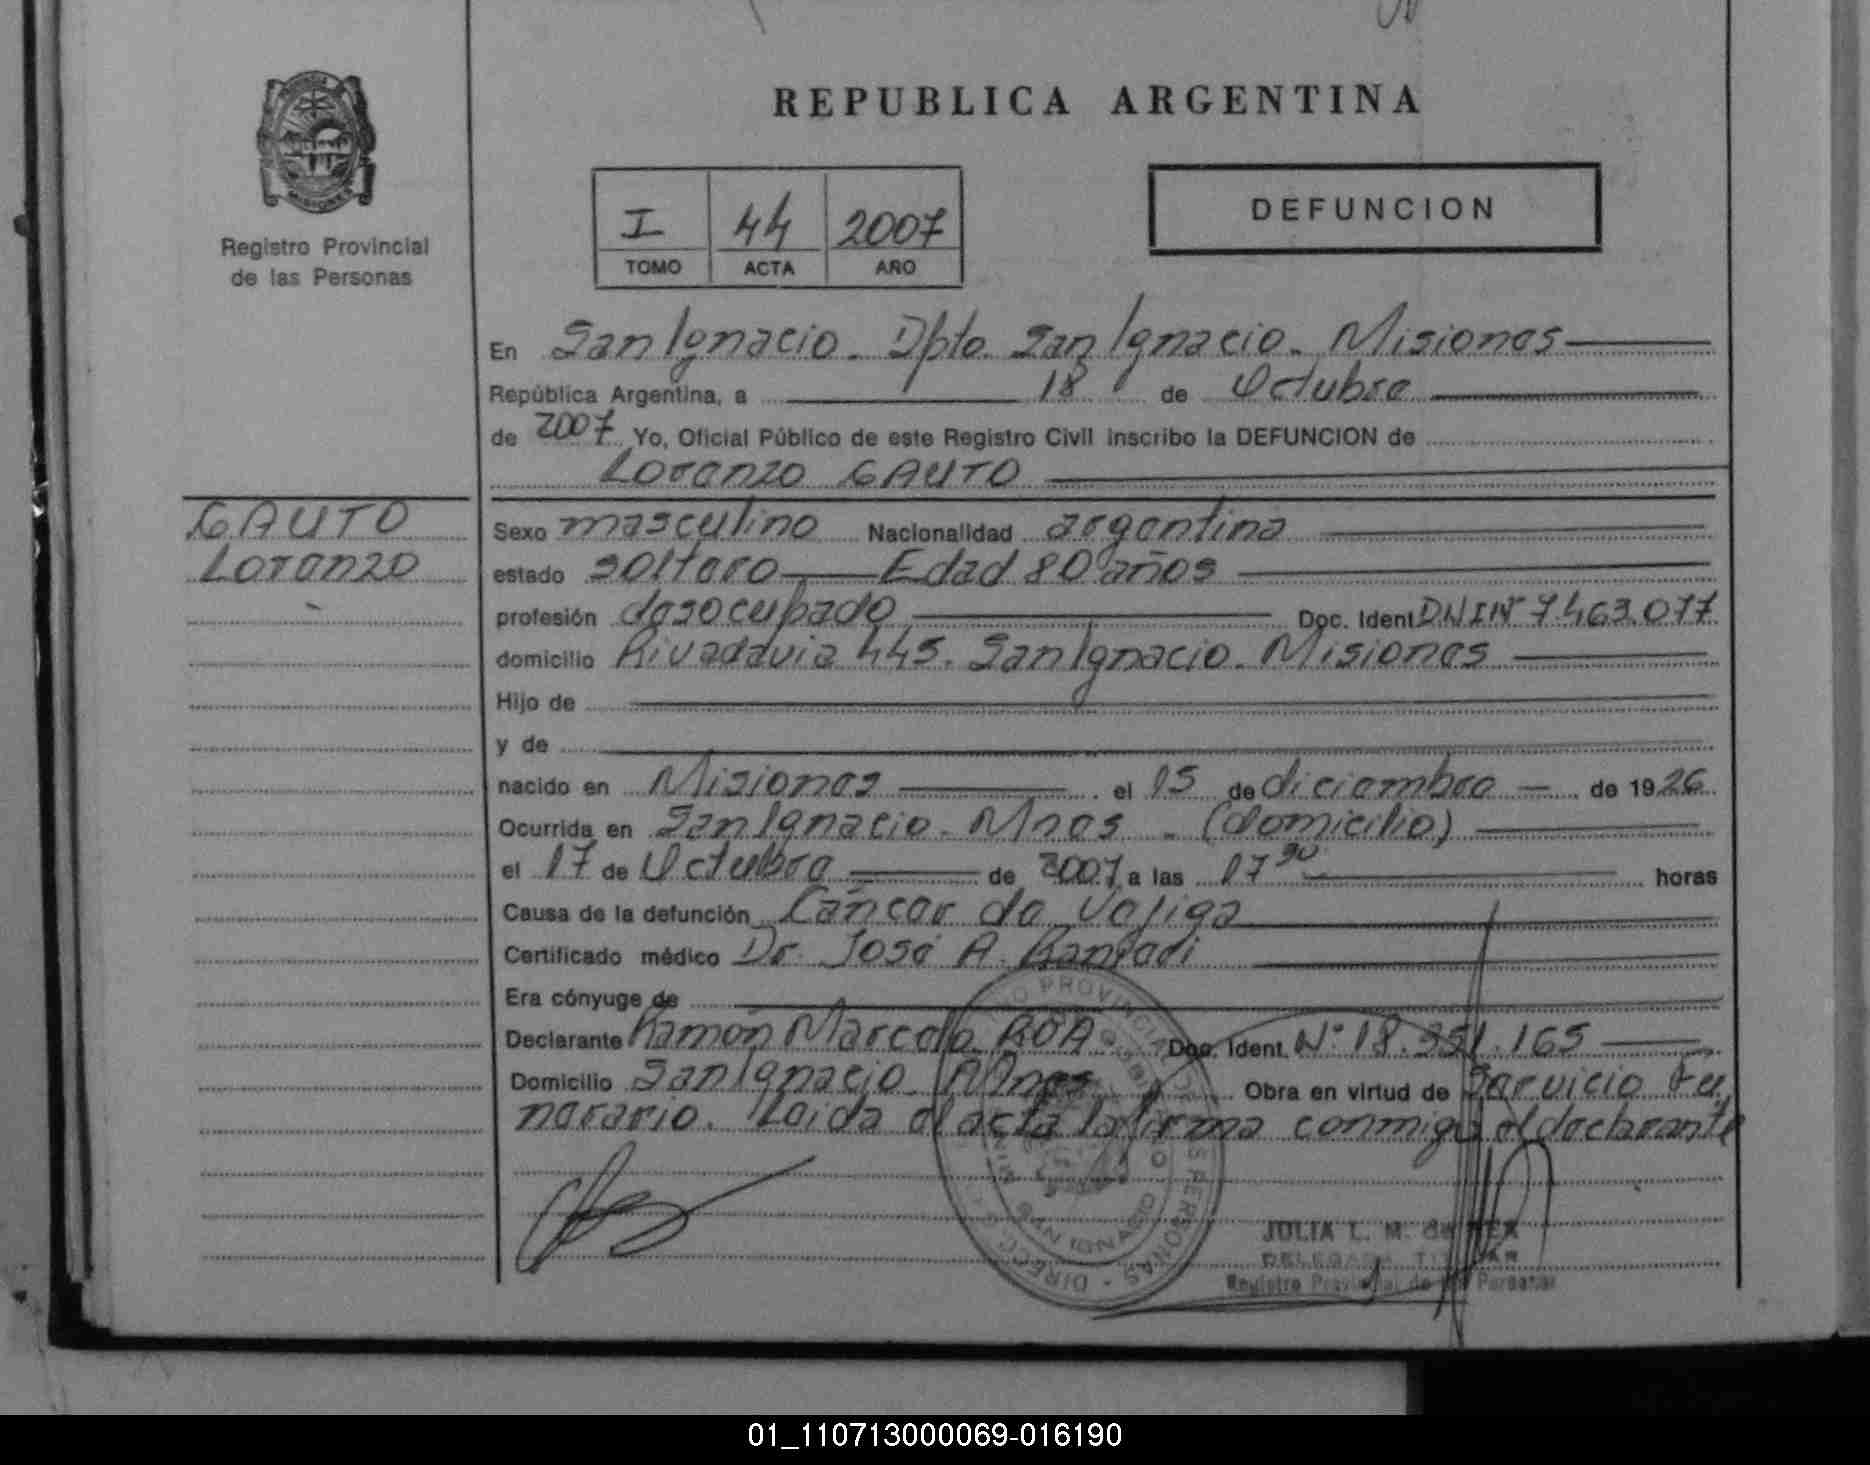 REPUBLICA ARGENTINA
PROVINCIA
MISIONES
Registro Provincial
de las Personas
I 44 2007
TOMO ACTA AÑO
DEFUNCION
En San Ignacio - Dpto. San Ignacio - Misiones
República Argentina, a 18 de Octubre
de 2007 Yo, Oficial Público de este Registro Civil inscribo la DEFUNCION de
Lorenzo GAUTO
GAUTO
Lorenzo
Sexo masculino Nacionalidad argentina
estado soltero Edad 80 años
profesión desocupado Doc. Ident DNI Nº 7.463.077
domicilio Rivadavia 445. San Ignacio - Misiones
Hijo de
y de
nacido en Misiones el 15 de diciembre de 1926
Ocurrida en San Ignacio - Mnes - (domicilio)
el 17 de Octubre de 2007 a las 17 30 horas
Causa de la defunción Cáncer de Vejiga
Certificado médico Dr. José A.
Era cónyuge de
Declarante Ramón Marcelo ROA Doc. Ident. Nº 18.351.165
Domicilio San Ignacio Mnes Obra en virtud de Servicio Fu
nerario. Leida el acta la firma conmigo el declarante
SAN IGNACIO
JULIA L. M. de
DELEGADA TITULAR
Registro Provincial de las Personas
01_110713000069-016190